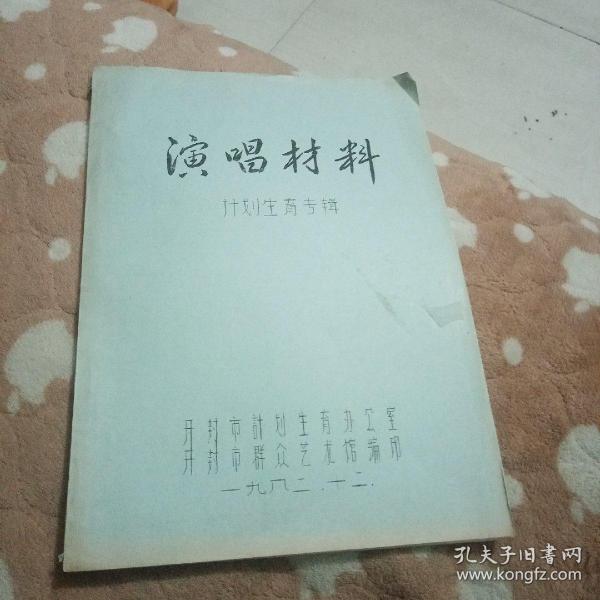 演唱材料
计划生育专辑
开封市計划生育办公室
开封市群众艺术馆编印
一九八二.十二.
孔夫子旧書网
www.kongfz.com